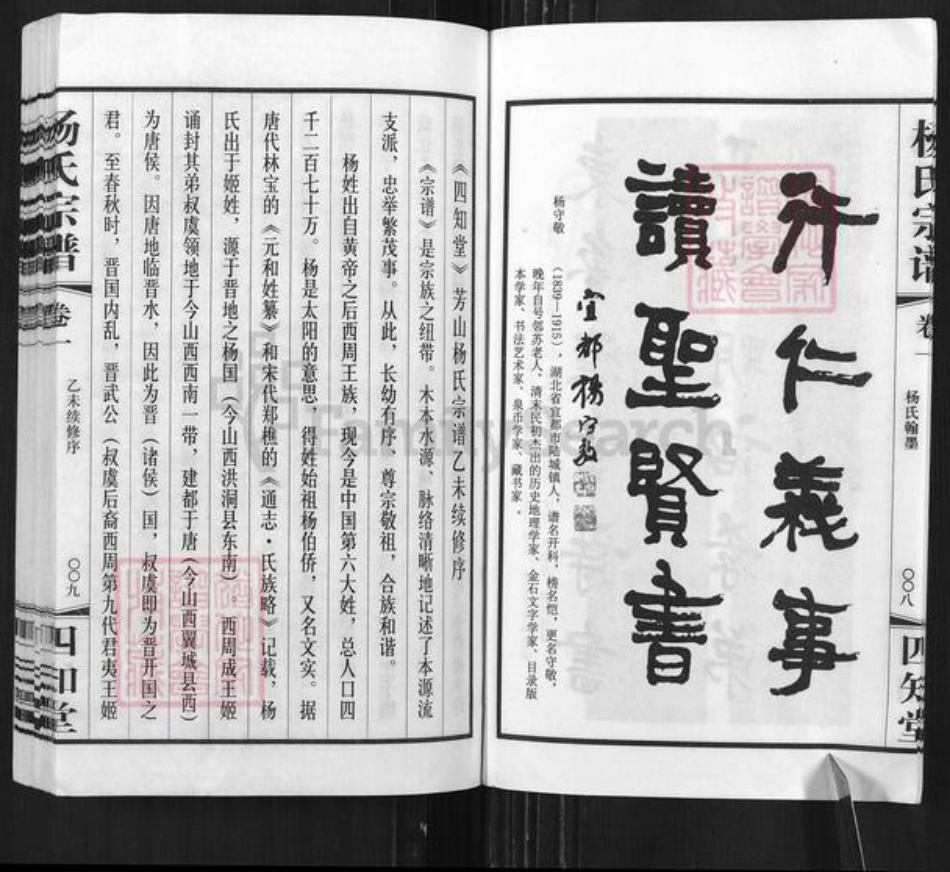 杨氏宗谱
卷一
杨氏翰墨
〇〇八
四知堂
行仁義事
讀聖賢書
宜都楊守敬
杨守敬
（1839—1915），湖北省宜都市陆城镇人，谱名开科，榜名恺，更名守敬，
晚年自号邻苏老人，清末民初杰出的历史地理学家、金石文字学家、目录版
本学家、书法艺术家、泉币学家、藏书家。
《四知堂》芳山杨氏宗谱乙未续修序
《宗谱》是宗族之纽带。木本水源、脉络清晰地记述了本源流
支派，忠举繁茂事。从此，长幼有序、尊宗敬祖，合族和谐。
杨姓出自黄帝之后西周王族，现今是中国第六大姓，总人口四
千二百七十万。杨是太阳的意思，得姓始祖杨伯侨，又名文实。据
唐代林宝的《元和姓纂》和宋代郑樵的《通志·氏族略》记载，杨
氏出于姬姓，源于晋地之杨国（今山西洪洞县东南）。西周成王姬
诵封其弟叔虞领地于今山西西南一带，建都于唐（今山西翼城县西）
为唐侯。因唐地临晋水，因此为晋（诸侯）国，叔虞即为晋开国之
君。至春秋时，晋国内乱，晋武公（叔虞后裔西周第九代君夷王姬
杨氏宗谱
卷一
乙未续修序
〇〇九
四知堂
FamilySearch